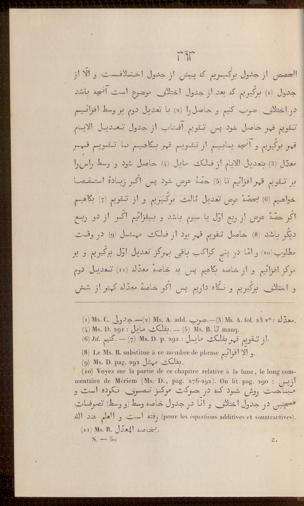 ٣٩٣
الحصص از جدول برگیریم که پیش از جدول اختلافست و الّا از
جدول (1) برگیریم که بعد از جدول اختلاف موضوع است آنچه باشد
در اختلاف ضرب کنیم و حاصل را (2) با تعدیل دوم بر وسط افزائیم
تقویم قمر حاصل شود پس تقویم آفتاب از جدول تعدیل الایام
قمر برگیریم و آنچه بیابیم از تقویم قمر بکاهیم تا تقویم قمر
معدّل (3) بتعدیل الایام از فلک مایل (4) حاصل شود و وسط راس را
بر تقویم قمر افزائیم تا (5) حصّهٔ عرض شود پس اگر زیادهٔ استقصا
خواهیم (6) بحصّهٔ عرض تعدیل ثالث برگیریم و از تقویم (7) بکاهیم
اگر حصّهٔ عرض از ربع اوّل یا سیوم باشد و بیفزائیم اگر از دو ربع
دیگر باشد (8) حاصل تقویم قمر بود از فلک ممثل (9) در وقت
مطلوب (10) وامّا در بنی کواکب باقی بمرکز تعدیل اوّل برگیریم و بر
مرکز افزائیم و از خاصه بکاهیم پس به خاصهٔ معدّله (11) تعدیل دوم
و اختلاف برگیریم و نگاه داریم پس اگر خاصهٔ معدّله کمتر از شش
(1) Ms. C. جدولی. — (2) Ms. A. add. ضرب. — (3) Ms. A. fol. 23 v°: معدّله.
(4) Ms. D. 291: بفلک مایل. — (5) Ms. B. تا manq.
(6) Id. کنیم. — (7) Ms. D. p. 292: از تقویم قمر بفلک مایل.
(8) Le Ms. B. substitue à ce membre de phrase و الا افزائیم.
(9) Ms. D. pag. 292 بفلک ممثل.
(10) Voyez sur la partie de ce chapitre relative à la lune, le long commentaire de Mériem (Ms. D., pag. 276-292). On lit pag. 290: ازین
مباحث روشن شد که در حرکت مرکز تصرف نکرده است و
همچنین در جدول اختلاف و امّا در جدول خاصه وسط (و وسط) تصرفات
رفته است و العلم عند الله (pour les équations additives et soustractives).
(11) Ms. B. بخاصه المعدّل.
S. — 50 2.